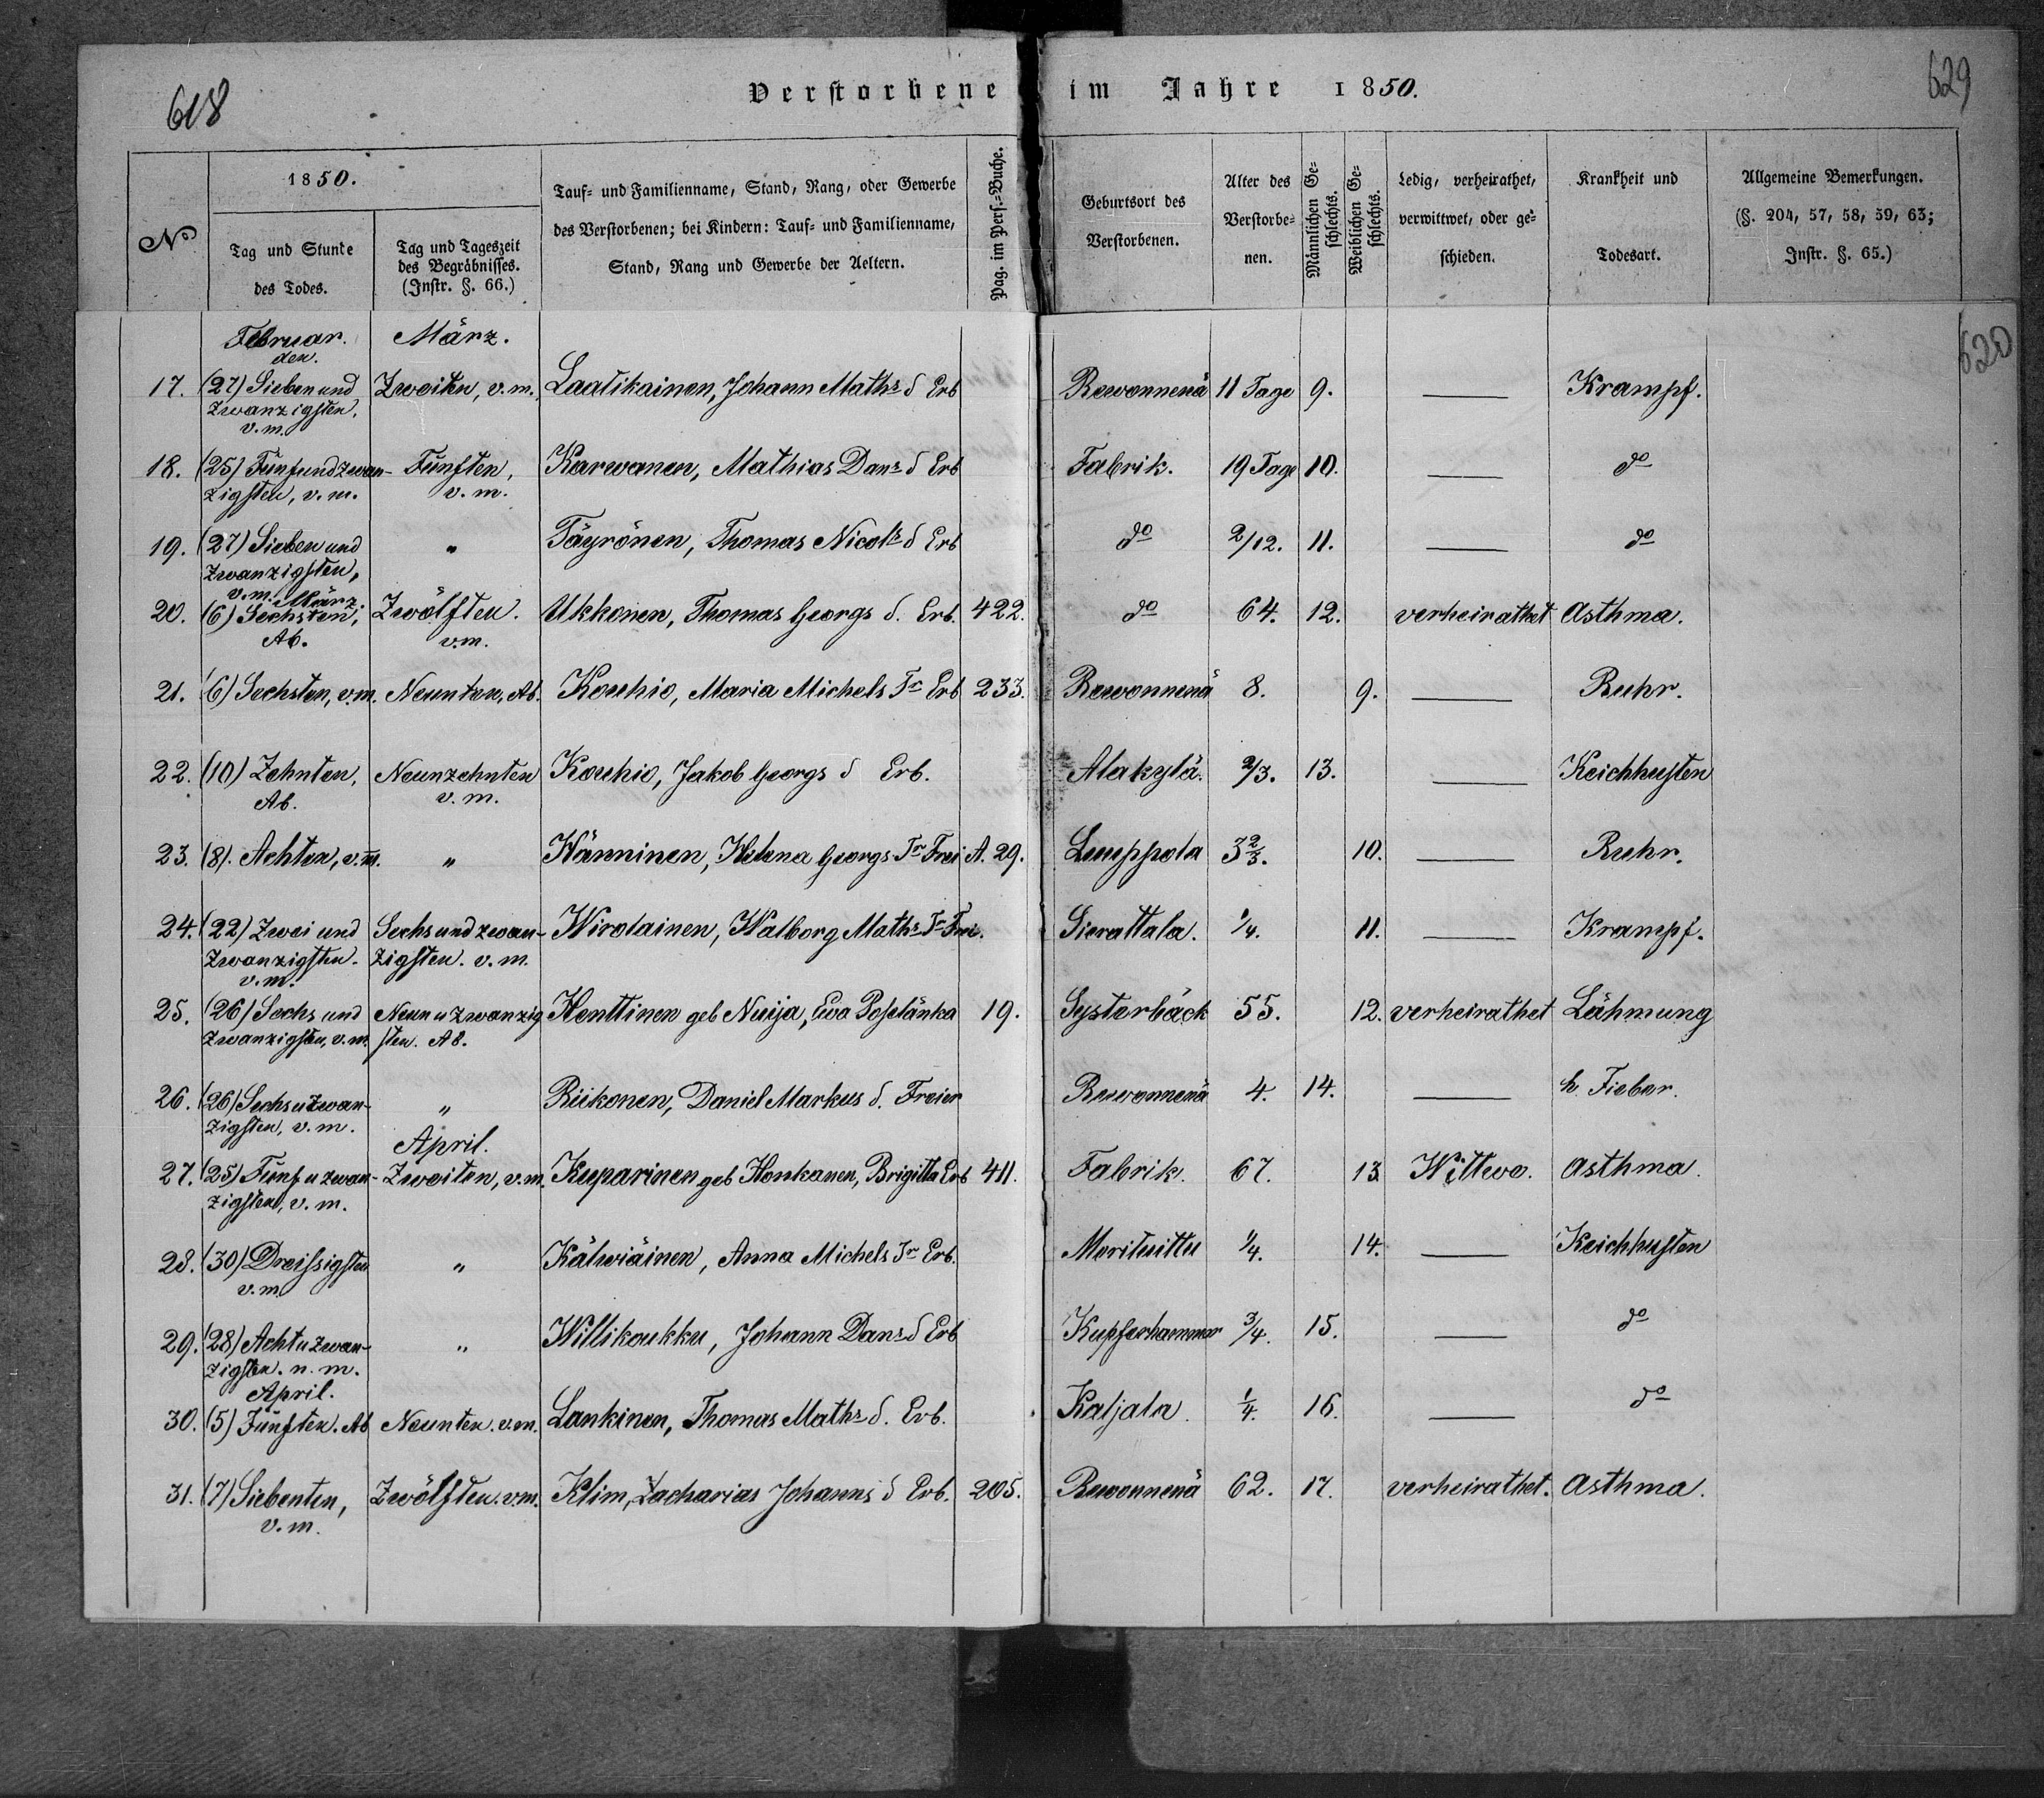 618
Verstorbene im Jahre 1850.
629
620
No
1850.
Tag und Stunde des Todes.
Tag und Tageszeit des Begräbnisses. (Instr. §. 66.)
Tauf- und Familienname, Stand, Rang, oder Gewerbe
des Verstorbenen; bei Kindern: Tauf- und Familienname,
Stand, Rang und Gewerbe der Aeltern.
Pag. im Pers.-Buche.
Geburtsort des Verstorbenen.
Alter des Verstorbe-nen.
Männlichen Ge-schlechts.
Weiblichen Ge-schlechts.
Ledig, verheirathet, verwittwet, oder ge-schieden.
Krankheit und Todesart.
Allgemeine Bemerkungen.
(§. 204, 57, 58, 59, 63;
Instr. §. 65.)
Februar. März.
den.
17. (27) Sieben und Zweiten, v. m. Laatikainen, Johann Maths d Erb Rewonnenä 11 Tage 9. — Krampf.
Zwanzigsten,
v. m.
18. (25) Fünfundzwan- Fünften, Karwanen, Mathias Dans d Erb Fabrik. 19 Tage 10. — do
zigsten, v. m. v. m.
19. (27) Sieben und " Täyrönen, Thomas Nicols d Erb do 2/12. 11. — do
Zwanzigsten,
v. m. März.
20. (6) Sechsten, Zwölften. Ukkonen, Thomas Georgs d. Erb. 422. do 64. 12. verheirathet Asthma.
Ab. v. m.
21. (6) Sechsten, v. m. Neunten, Ab. Kouhio, Maria Michels Tr Erb 233. Rewonnenä 8. 9. — Ruhr.
22. (10) Zehnten, Neunzehnten Kouhio, Jakob Georgs d Erb. Alakylä. 2/3. 13. — Keichhusten
Ab. v. m.
23. (8). Achten, v. m. " Hänninen, Helena Georgs Tr Frei A. 29. Lemppola 3 2/3. 10. — Ruhr.
24. (22) Zwei und Sechs und zwan- Wirolainen, Walborg Maths Tr Frei. Sierattala. 1/4. 11. — Krampf.
Zwanzigsten. zigsten. v. m.
v. m.
25. (26) Sechs und Neun u zwanzig Henttinen geb Nuija, Ewa Poselänka 19. Systerbäck 55. 12. verheirathet Lähmung
Zwanzigsten, v. m. sten. Ab.
26. (26) Sechs u zwan- " Riikonen, Daniel Markus d. Freier Rewonnenä 4. 14. — h. Fieber.
zigsten, v. m.
April.
27. (25) Fünf u zwan- Zweiten, v. m. Kuparinen geb Honkanen, Brigitta Erb 411. Fabrik. 67. 13. Wittwe. Asthma.
zigsten, v. m.
28. (30) Dreissigsten " Kälwiäinen, Anna Michels Tr Erb. Merituittu 1/4. 14. — Keichhusten
v. m.
29. (28) Acht u zwan- " Willikoukku, Johann Dans d Erb Kupferhammer 3/4. 15. — do
zigsten. n. m.
April.
30. (5) Fünften. Ab Neunten. v. m. Lankinen, Thomas Maths d. Erb. Kaljala. 1/4. 16. — do
31. (7) Siebenten, Zwölften. v. m. Klim, Zacharias Johanns d Erb. 205. Rewonnenä 62. 17. verheirathet. Asthma.
v. m.